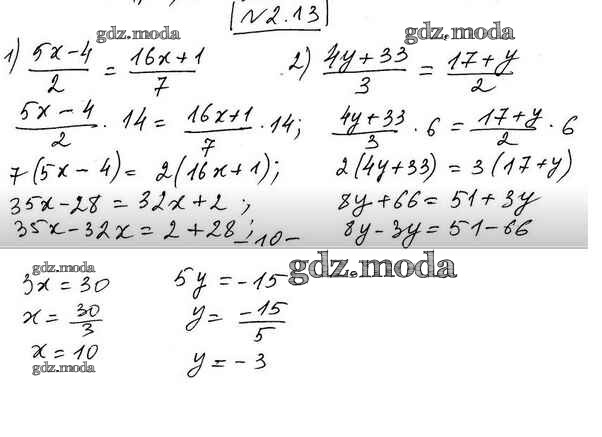 №2.13
gdz.moda
gdz.moda
1) (5x-4)/2 = (16x+1)/7
2) (4y+33)/3 = (17+y)/2
(5x-4)/2 · 14 = (16x+1)/7 · 14;
(4y+33)/3 · 6 = (17+y)/2 · 6
7(5x-4) = 2(16x+1);
2(4y+33) = 3(17+y)
35x-28 = 32x+2;
8y+66 = 51+3y
35x-32x = 2+28;
-10-
8y-3y = 51-66
gdz.moda
gdz.moda
3x = 30
5y = -15
x = 30/3
y = -15/5
x = 10
y = -3
gdz.moda